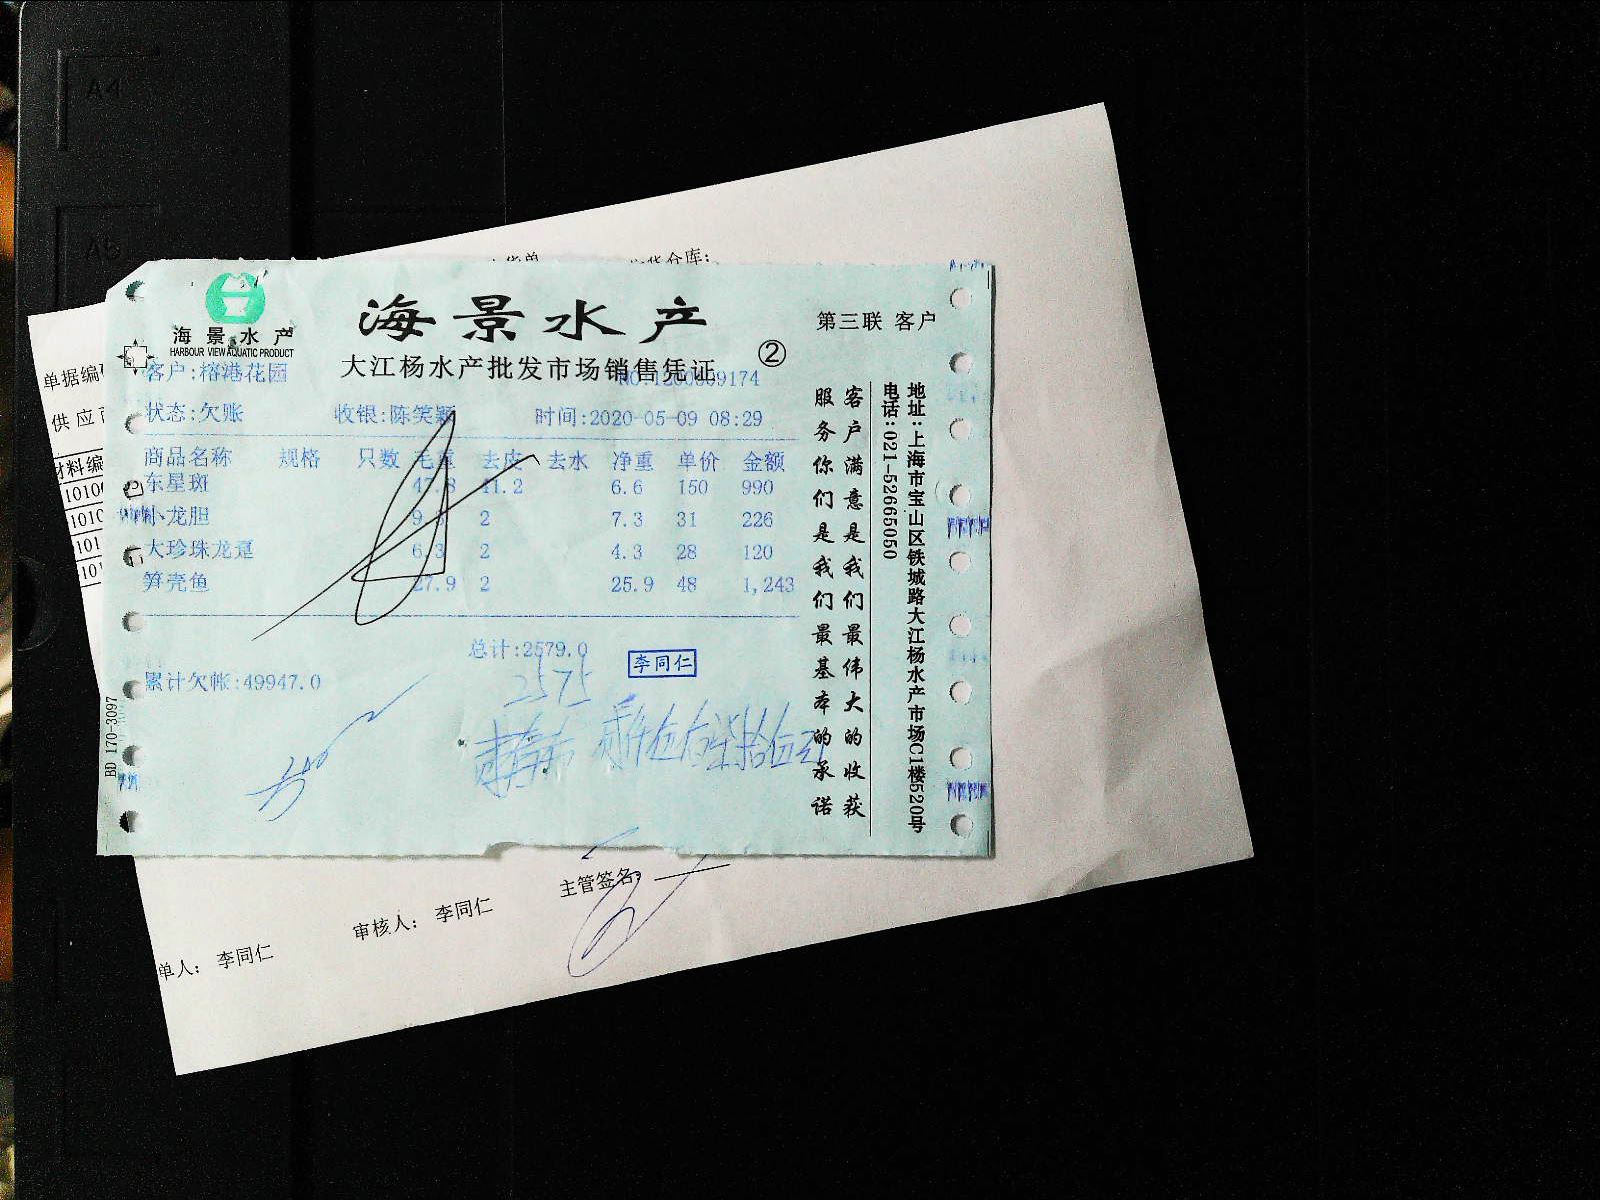 A4
A5
收货仓库:
单据编
供应
材料编
海景水产
HARBOUR VIEW AQUATIC PRODUCT
海景水产
大江杨水产批发市场销售凭证
②
第三联 客户
客户:榕港花园
状态:欠账 收银:陈笑颖 时间:2020-05-09 08:29
商品名称 规格 只数 毛重 去皮 去水 净重 单价 金额
东星斑 47.8 41.2 6.6 150 990
小龙胆 9.3 2 7.3 31 226
大珍珠龙趸 6.3 2 4.3 28 120
笋壳鱼 27.9 2 25.9 48 1,243
总计:2579.0
李同仁
累计欠帐:49947.0
2575
贰仟伍佰柒拾伍元
客户满意是我们最伟大的收获
服务你们是我们最基本的承诺
地址:上海市宝山区铁城路大江杨水产市场C1楼520号
电话:021-52665050
BD 170-3097
单人: 李同仁
审核人: 李同仁
主管签名: